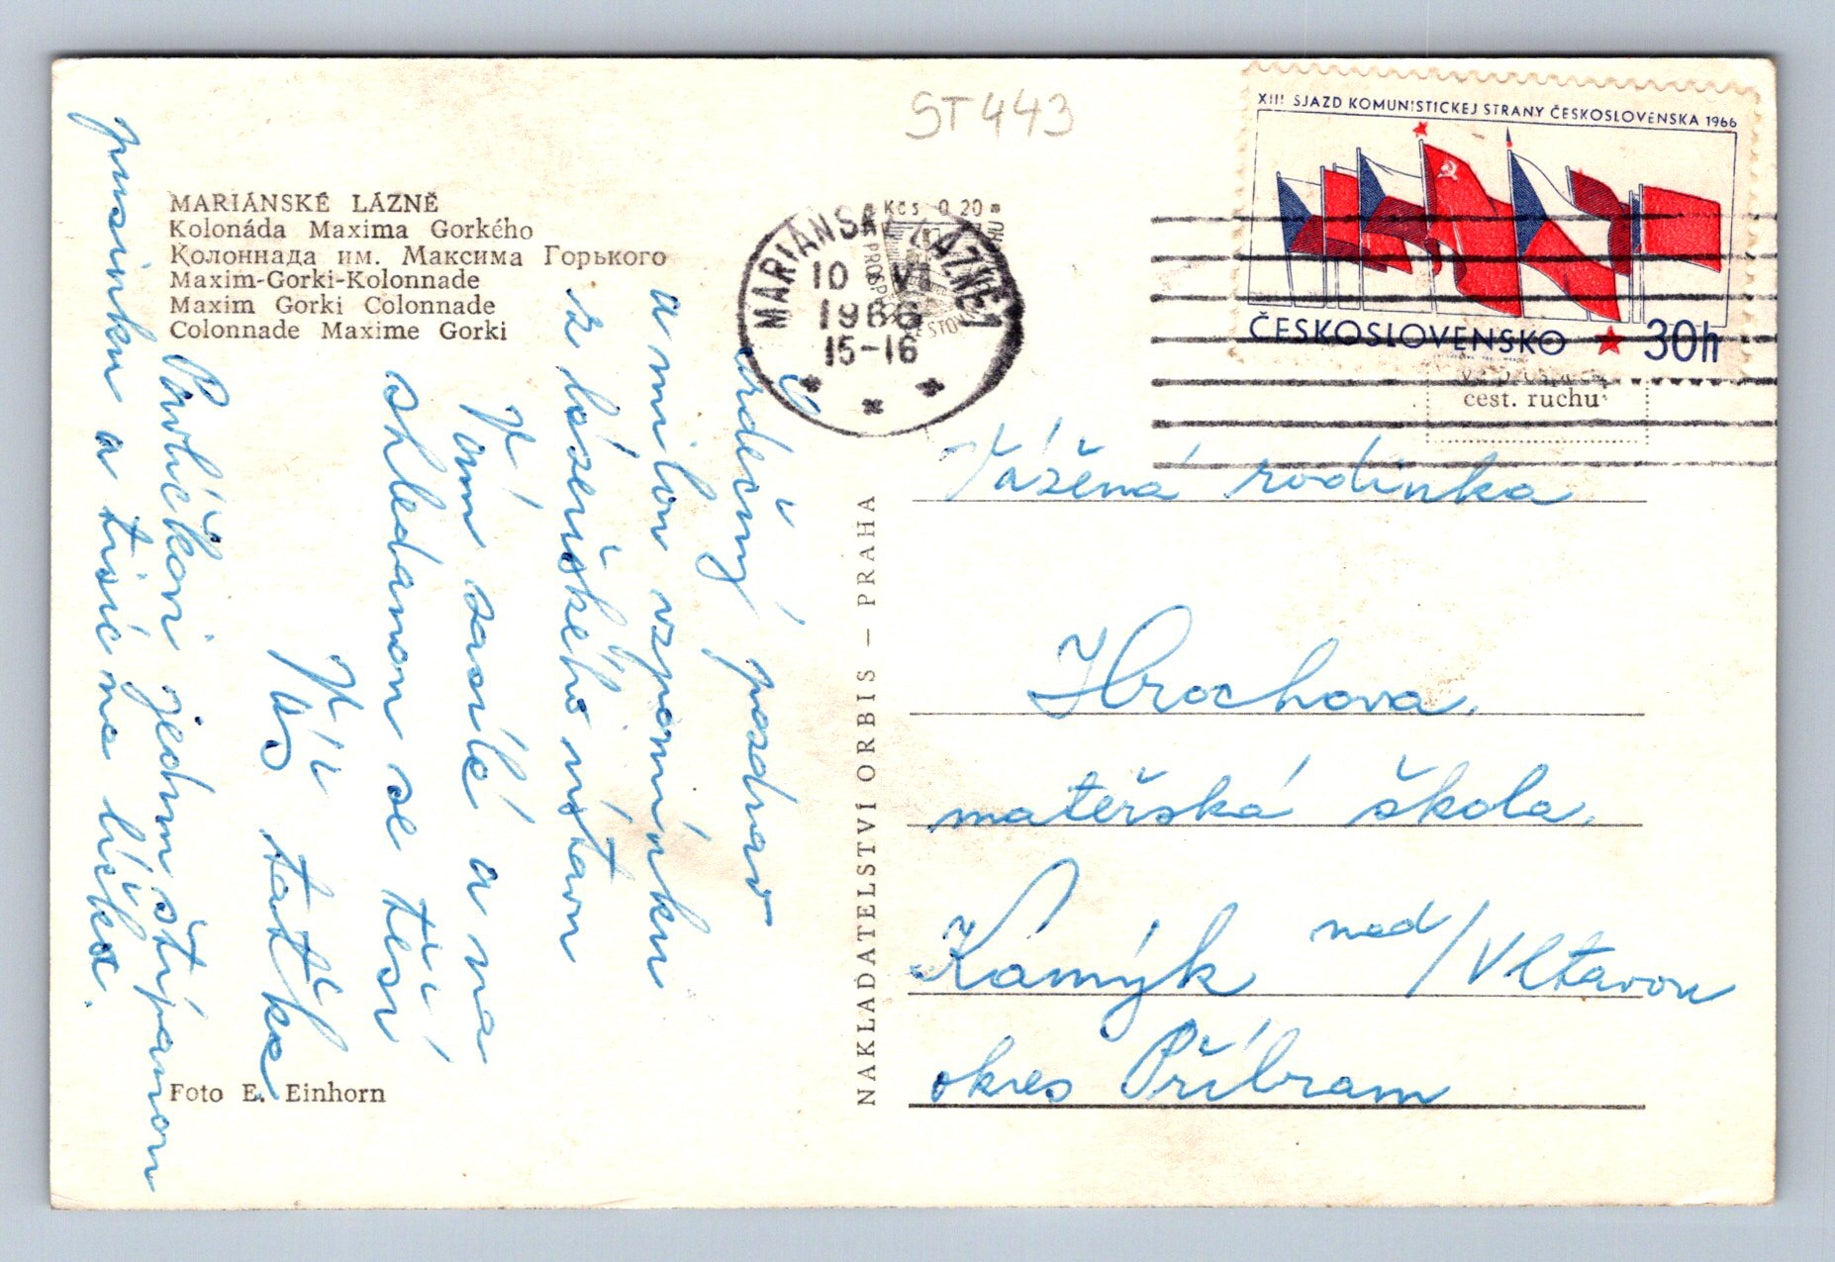 ST443
MARIÁNSKÉ LÁZNĚ
Kolonáda Maxima Gorkého
Колоннада им. Максима Горького
Maxim-Gorki-Kolonnade
Maxim Gorki Colonnade
Colonnade Maxime Gorki
Srdečný pozdrav
a milou vzpomínku
z lázeňského ústavu
Vám zasílá a na
shledanou se těší
Váš tatík
Pavlíčkovi jednu štípanou
pusinku a tisíc na líčka.
Foto E. Einhorn
NAKLADATELSTVÍ ORBIS — PRAHA
Kčs 0,20
MARIÁNSKÉ LÁZNĚ 1
10 VI
1966
15-16
XIII SJAZD KOMUNISTICKEJ STRANY ČESKOSLOVENSKA 1966
ČESKOSLOVENSKO 30h
cest. ruchu
Vážená rodinka
Hrochova.
mateřská škola.
Kamýk nad/Vltavou
okres Příbram